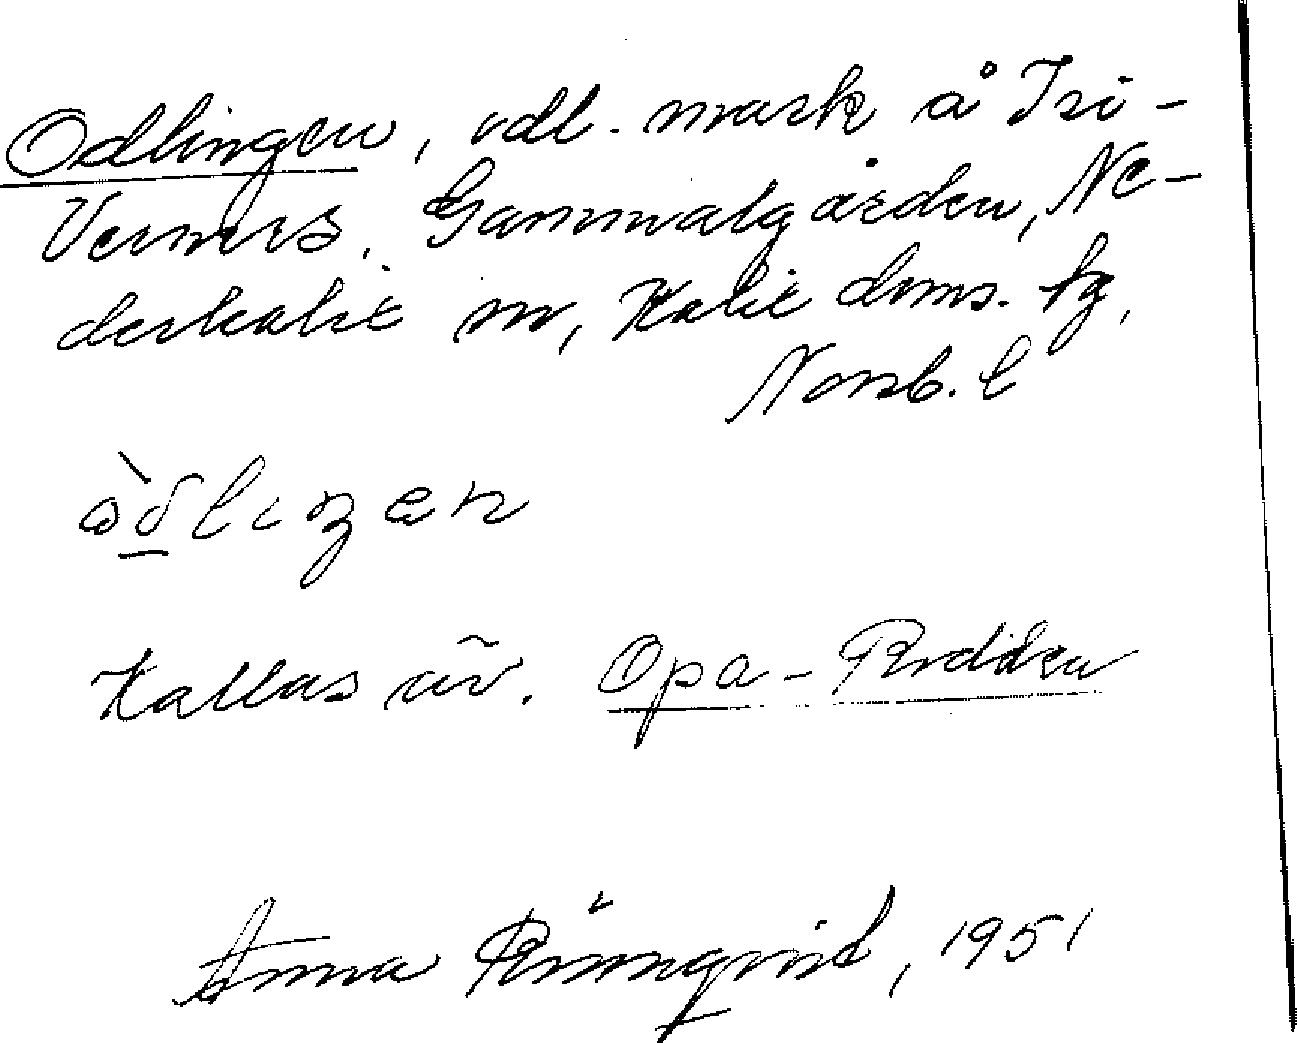 Odlingen, odl. mark å Isi-
Verners, Gammalgården, Ne-
derkalix sn, Kalix doms. fg,
Norrb. l
Kallas äv. Opa-Rödden
Anna Rönnqvist, 1951